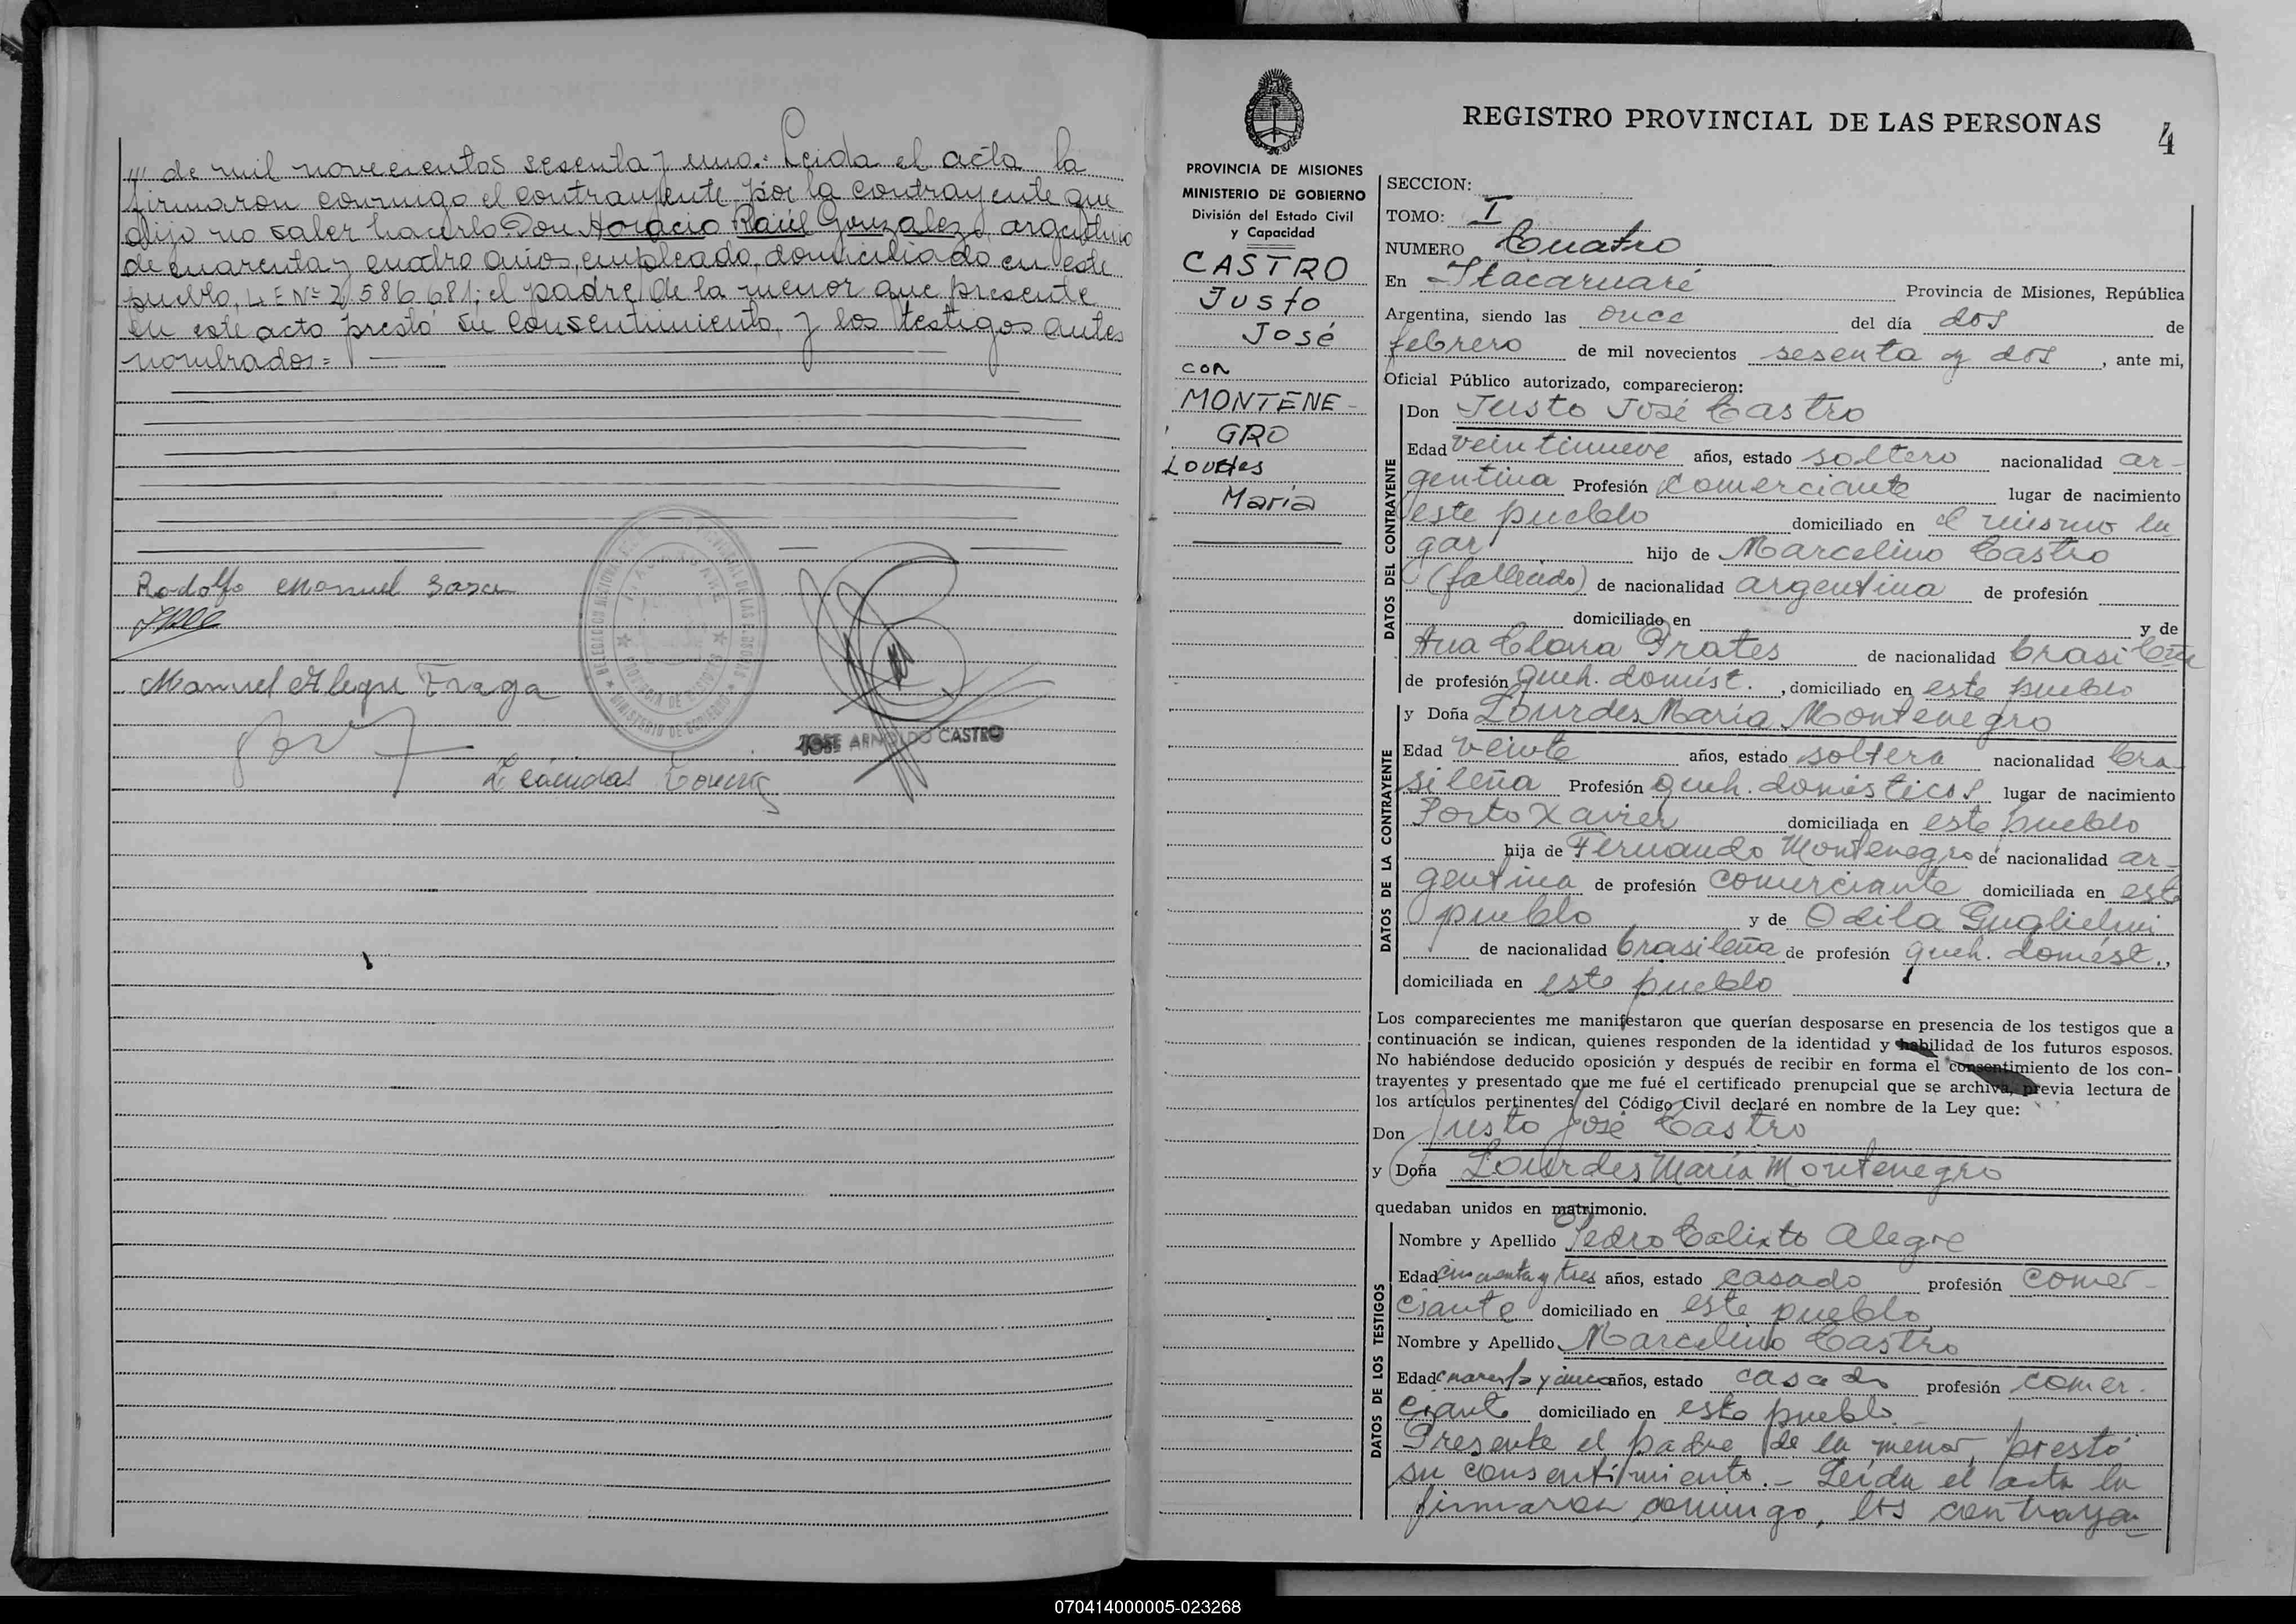 /// de mil novecientos sesenta y uno.- Leida el acta la
firmaron conmigo el contrayente, por la contrayente que
dijo no saber hacerlo Don Horacio Raúl Gonzalez, argentino
de cuarenta y cuatro años, empleado, domiciliado en este
pueblo, L E Nº 2.586.681; el padre de la menor que presente
en este acto prestó su consentimiento, y los testigos antes
nombrados=
Rodolfo Manuel
Manuel Alegre Fraga
JOSE ARNOLDO CASTRO
PROVINCIA DE MISIONES
MINISTERIO DE GOBIERNO
División del Estado Civil
y Capacidad
CASTRO
Justo
José
con
MONTENE-
GRO
Lourdes
María
REGISTRO PROVINCIAL DE LAS PERSONAS
4
SECCION:
TOMO: I
NUMERO Cuatro
En Itacaruaré Provincia de Misiones, República
Argentina, siendo las once del día dos de
febrero de mil novecientos sesenta y dos, ante mi,
Oficial Público autorizado, comparecieron:
DATOS DEL CONTRAYENTE
Don Justo José Castro
Edad veintinueve años, estado soltero nacionalidad ar-
gentina Profesión comerciante lugar de nacimiento
este pueblo domiciliado en el mismo lu-
gar hijo de Marcelino Castro
(fallecido) de nacionalidad argentina de profesión
domiciliado en y de
Ana Clara Prates de nacionalidad brasileña
de profesión queh. domést. , domiciliado en este pueblo
DATOS DE LA CONTRAYENTE
y Doña Lourdes María Montenegro
Edad veinte años, estado soltera nacionalidad bra-
sileña Profesión queh. domésticos lugar de nacimiento
Porto Xavier domiciliada en este pueblo
hija de Fernando Montenegro de nacionalidad ar-
gentina de profesión comerciante domiciliada en este
pueblo y de Odila Guglielmi
de nacionalidad brasileña de profesión queh. domést.,
domiciliada en este pueblo
Los comparecientes me manifestaron que querían desposarse en presencia de los testigos que a
continuación se indican, quienes responden de la identidad y habilidad de los futuros esposos.
No habiéndose deducido oposición y después de recibir en forma el consentimiento de los con-
trayentes y presentado que me fué el certificado prenupcial que se archiva, previa lectura de
los artículos pertinentes del Código Civil declaré en nombre de la Ley que:
Don Justo José Castro
y Doña Lourdes María Montenegro
quedaban unidos en matrimonio.
DATOS DE LOS TESTIGOS
Nombre y Apellido Pedro Calixto Alegre
Edad cincuenta y tres años, estado casado profesión comer-
ciante domiciliado en este pueblo
Nombre y Apellido Marcelino Castro
Edad cuarenta y cinco años, estado casado profesión comer-
ciante domiciliado en este pueblo.-
Presente el padre de la menor, prestó
su consentimiento.- Leída el acta la
firmaron conmigo, los contrayen
070414000005-023268